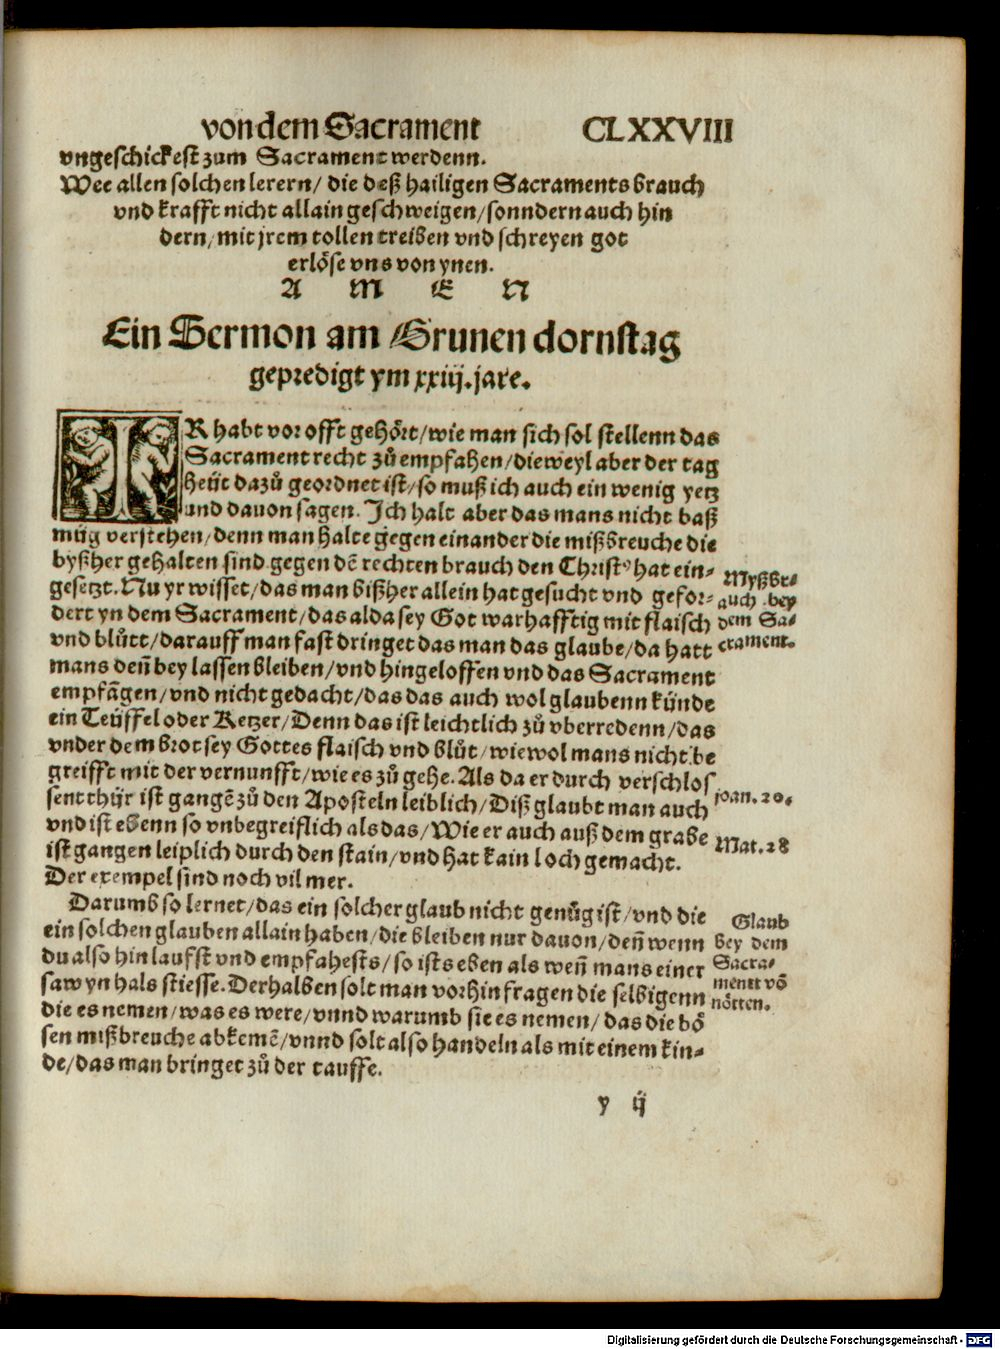 von dem Sacrament CLXXVIII
vngeschickest zum Sacrament werdenn.
Wee allen solchen lerern/ die deß hailigen Sacraments brauch
vnd krafft nicht allain geschweigen/ sonndern auch hin
dern/ mit jrem tollen treiben vnd schreyen got
erlöse vns von ynen.
A M E N
Ein Sermon am Grunen dornstag
gepredigt ym xxiij. jare.
IR habt vor offt gehört/ wie man sich sol stellenn das
Sacrament recht zů empfahen/ die weyl aber der tag
heüt dazů geordnet ist/ so muß ich auch ein wenig yetz
und dauon sagen. Ich halt aber das mans nicht baß
müg verstehen/ denn man halte gegen einander die mißbreuche die
byßher gehalten sind gegen dē rechten brauch den Christꝰ hat ein-
gesetzt. Nu yr wisset/ das man bißher allein hat gesucht vnd gefor-
dert yn dem Sacrament/ das alda sey Got warhafftig mit flaisch
vnd blůtt/ darauff man fast dringet das man das glaube/ da hatt
mans deñ bey lassen bleiben/ vnd hingeloffen vnd das Sacrament
empfāgen/ vnd nicht gedacht/ das das auch wol glaubenn künde
ein Teüffel oder Ketzer/ Denn das ist leichtlich zů vberredenn/ das
vnder dem brot sey Gottes flaisch vnd blůt/ wiewol mans nicht be
greifft mit der vernunfft/ wie es zů gehe. Als da er durch verschlos
sent thür ist gangē zů den Aposteln leiblich/ Diß glaubt man auch
vnd ist ebenn so vnbegreiflich als das/ Wie er auch auß dem grabe
ist gangen leiplich durch den stain/ vnd hat kain loch gemacht.
Der exempel sind noch vil mer.
Darumb so lernet/ das ein solcher glaub nicht genůg ist/ vnd die
ein solchen glauben allain haben/ die bleiben nur dauon/ deñ wenn
du also hin laufst vnd empfahests/ so ists eben als weñ mans einer
saw yn hals stiesse. Derhalben solt man vorhin fragen die selbigenn
die es nemen/ was es were/ vnnd warumb sie es nemen/ das die bö
sen mißbreuche abkemē/ vnnd solt also handeln als mit einem kin-
de/ das man bringet zů der tauffe.
Myßbr-
auch bey
dem Sa-
crament.
joan. 20.
Mat. 28
Glaub
bey dem
Sacra-
ment vō
nötten.
y ij
Digitalisierung gefördert durch die Deutsche Forschungsgemeinschaft - DFG